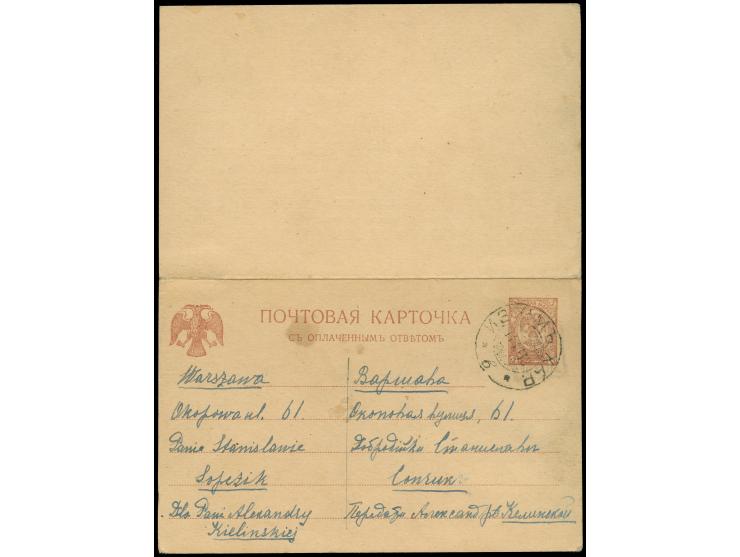 ПОЧТОВАЯ КАРТОЧКА
СЪ ОПЛАЧЕННЫМЪ ОТВѢТОМЪ.
Warszawa
Okopowa ul. 61.
Pania Stanislawie
Sopczik
Dla Pani Alexandry
Kielinskiej
Варшава
Окоповая улица, 61.
Добродійки Станиславы
Сопчик
Передати Александрѣ Келинской
ИЗЮМЪ ХАР